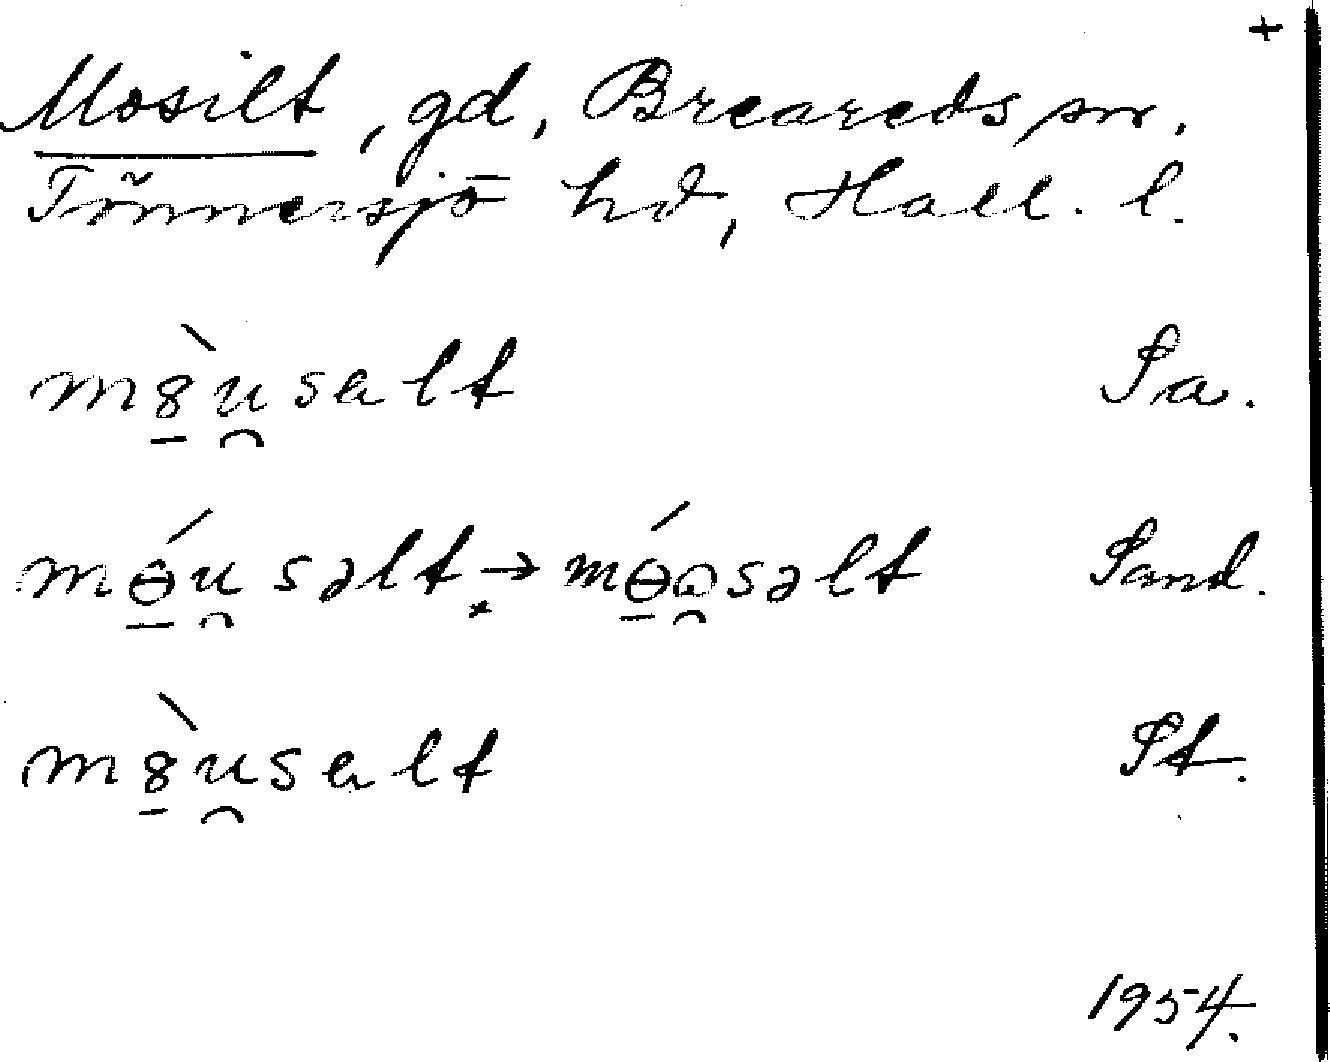 +
Mosilt, gd, Breareds sn.
Tönnersjö hd, Hall. l.
m8̱̀u̯salt Sa.
mɵ̱́u̯səlt → mɵ̱́ɷ̯səlt Sand.
m8̱̀u̯salt St.
1954.